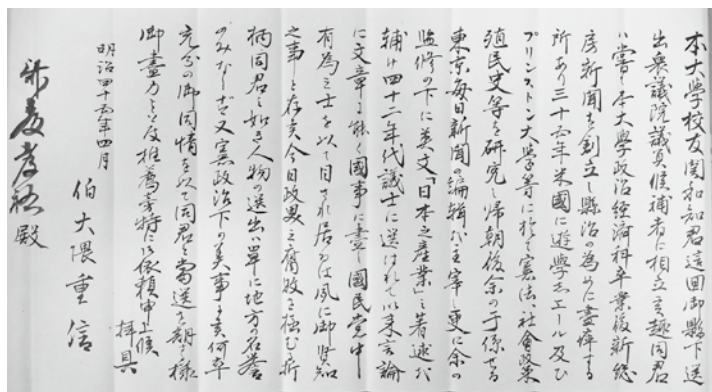 本大學校友関和知君這回御縣下選
出衆議院議員候補者に相立候趣同君
ハ嘗て本大學政治経濟科卒業後新総
房新聞を創立し縣治の為めに盡瘁する
所あり三十五年米國に遊學しエール及び
プリンストン大學等に於て憲法、社會政策
殖民史等を研究し帰朝後余の干係せる
東京毎日新聞の編輯を主宰し更に余の
監修の下に英文「日本之産業」を著述を
輔け四十二年代議士に選はれて以来言論
に文章に能く國事に盡し國民党中
有為之士を以て目され居るは夙に御熟知
之事と存候今日政界之腐敗を極むる折
柄同君の如き人物の選出ハ単に地方の名誉
のみならず又憲政治下の美事と存候何卒
充分の御同情を以て同君を當選を期し様
御盡力を以て及推薦旁特に御依頼申上候
拝具
明治四十五年四月
伯大隈重信
殿